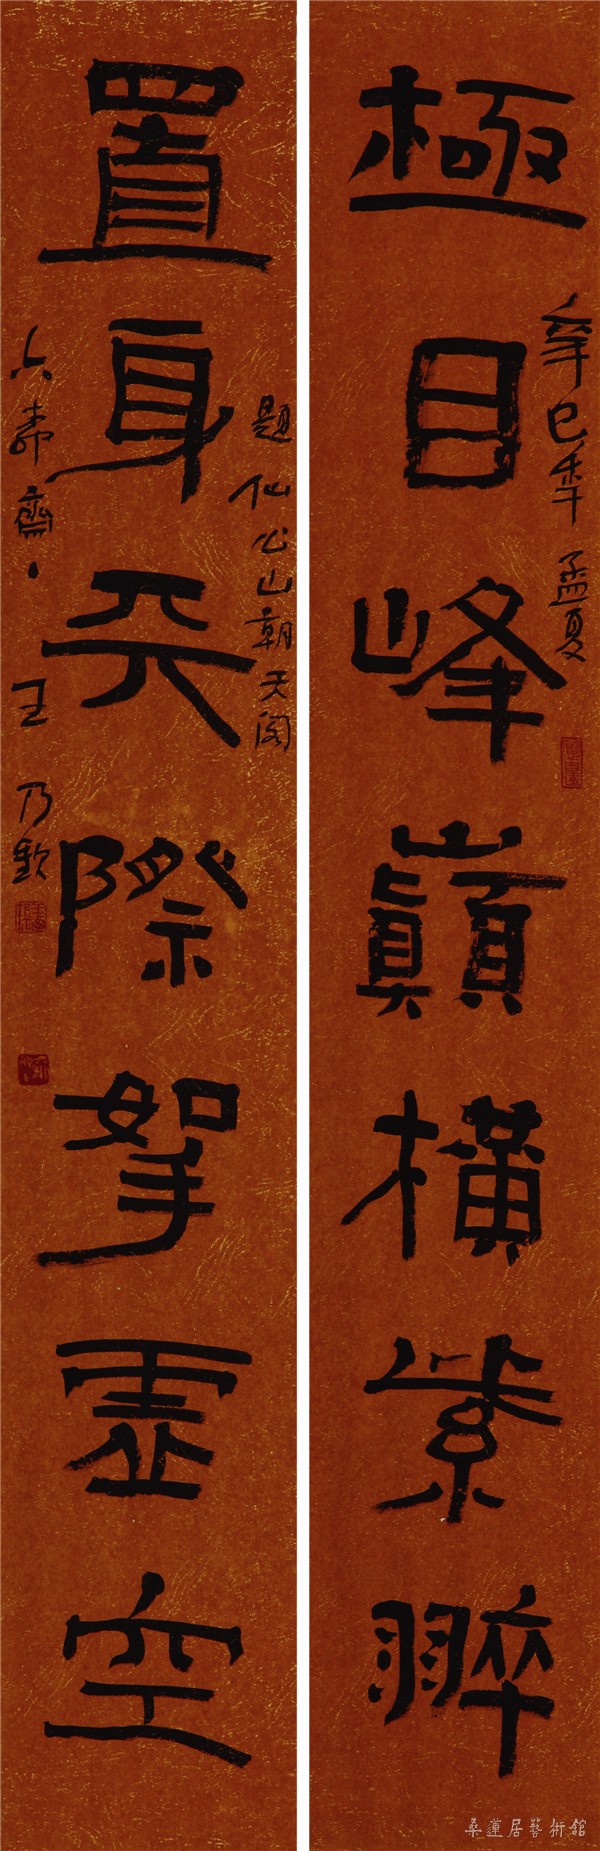 極目峰巔橫紫翠
辛巳年孟夏
置身天際挐虛空
題仙公山朝天阁
齋 王乃欽
桑蓮居藝術館